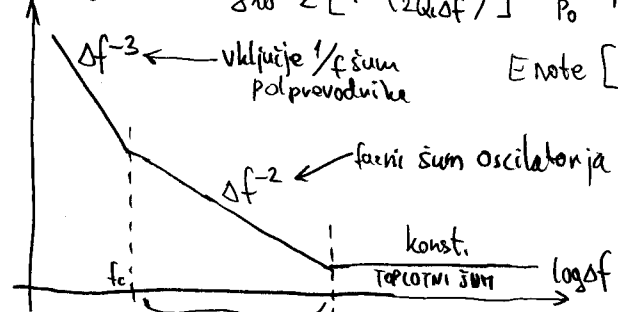 Δf⁻³
vključuje 1/f šum
polprevodnika
Enote [
Δf⁻²
fazni šum oscilatorja
konst.
TOPLOTNI ŠUM
logΔf
fc